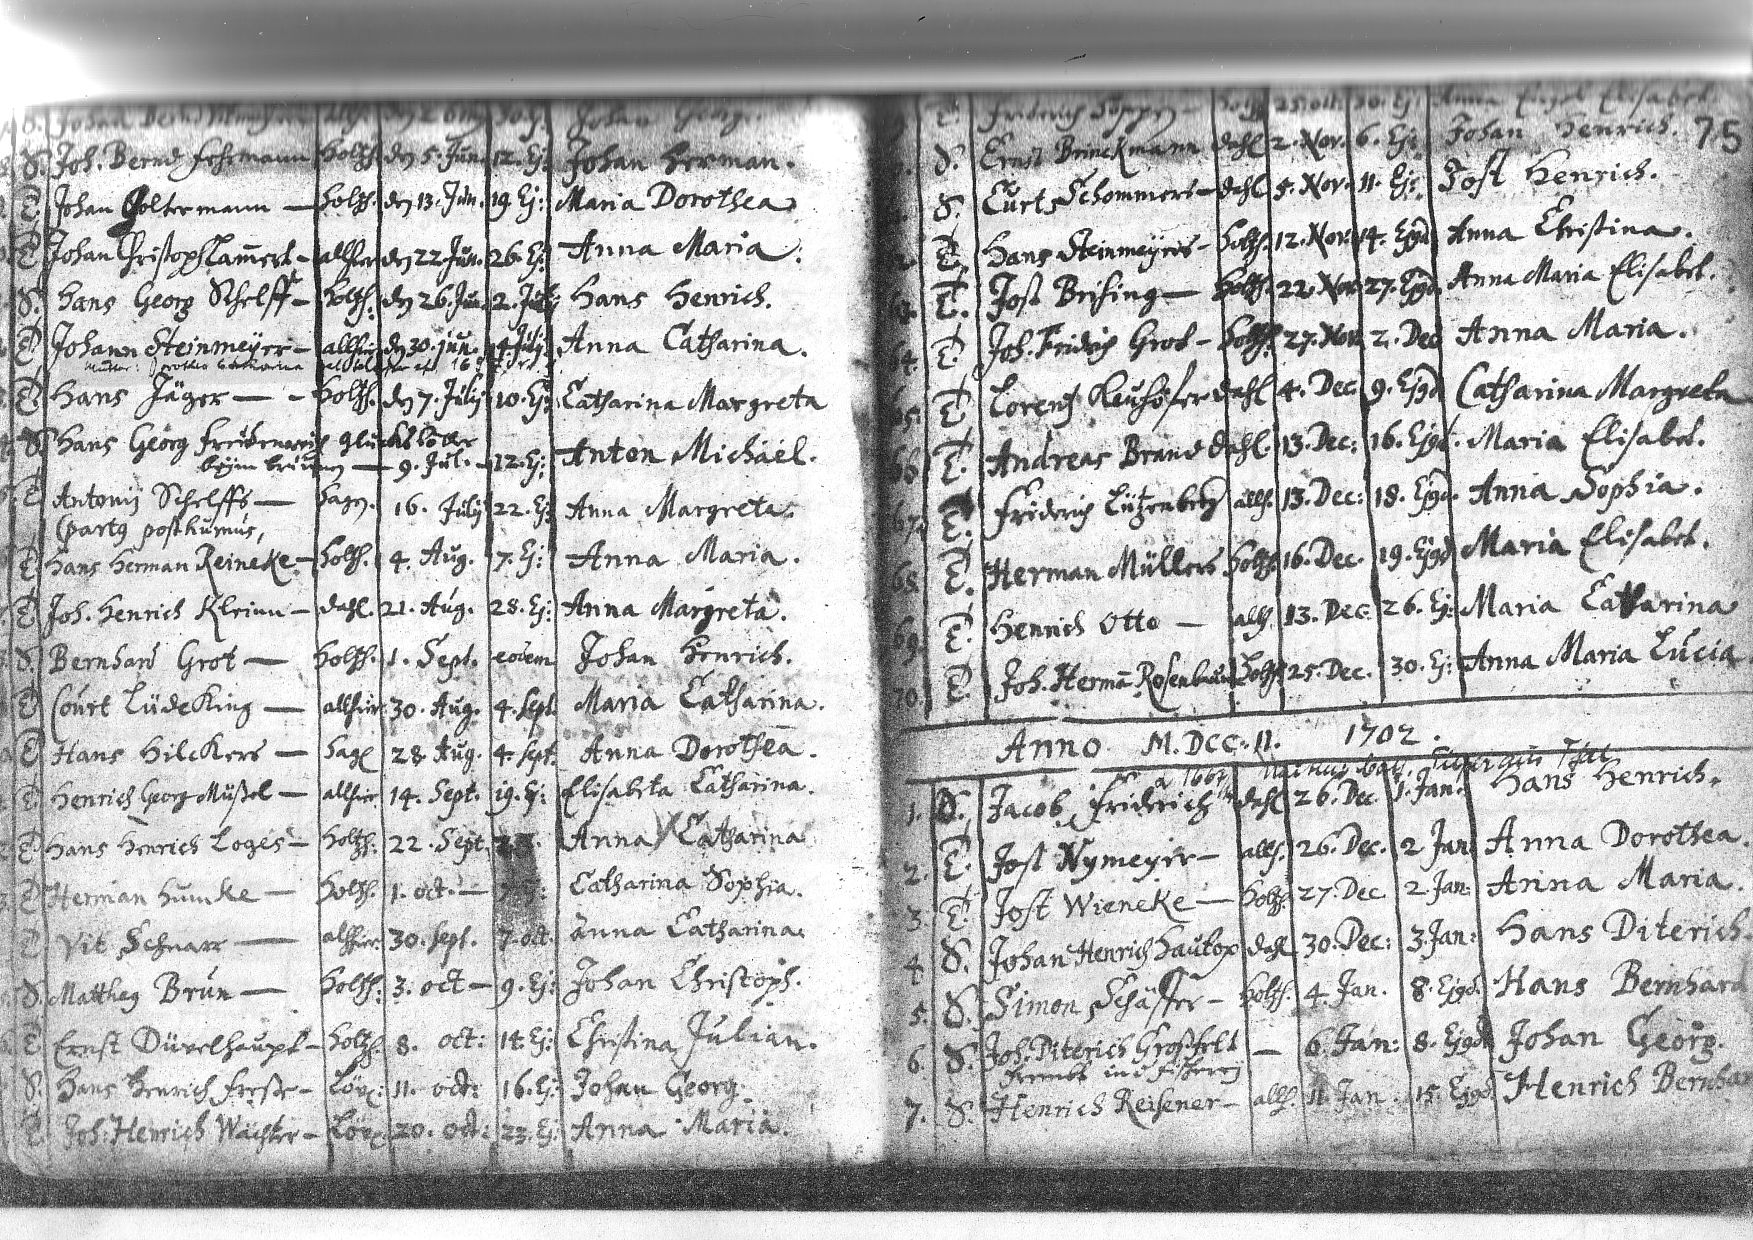 S. Joh. Bernd Fehrmann Holtzh. den 5. Jun. 12. Ej: Johan Herman.
T. Johan Goltermann — Holtzh. den 13. Jun. 19. Ej: Maria Dorothea
T. Johan Christoph Lamert — allhier den 22 Jun. 26. Ej: Anna Maria.
S. Hans Georg Schelff — Holtzh. den 26. Jun. 2. July Hans Henrich.
T. Johann Steinmeyer — allhier den 30. jun. 4 July Anna Catharina.
T. Hans Jäger — Holtzh. den 7. July 10. Ej: Catharina Margreta
S. Hans Georg
9. Jul. — 12. Ej: Anton Michäel.
T. Antonij Schelffs — Hagen. 16. July 22. Ej: Anna Margreta.
(partg posthumus,
T. Hans Herman Reineke — Holtzh. 4. Aug. 7. Ej: Anna Maria.
T. Joh. Henrich Kleinn — dahl. 21. Aug. 28. Ej: Anna Margreta.
S. Bernhard Grot — Holtzh. 1. Sept. eodem Johan Henrich.
T. Court Lüdeking — allhier 30. Aug. 4. Sept. Maria Catharina.
T. Hans Hilckers — Hagen 28 Aug. 4. Sept. Anna Dorothea.
T. Henrich Georg Müßel — allhier 14. Sept. 19. Ej: Elisabeta Catharina.
T. Hans Henrich Loges — Holtzh. 22. Sept. Anna Catharina
T. Herman Humke — Holtzh. 1. oct. — Catharina Sophia.
T. Vit Schnarr — allhier. 30. Sept. 7. oct. Anna Catharina.
S. Mattheg Brun — Holtzh. 3. oct — 9. Ej: Johan Christoph.
T. Ernst Düvelhaupt — Holtzh. 8. oct: 14. Ej: Christina Julian.
S. Hans Henrich Freße — Löwen: 11. oct: 16. Ej: Johan Georg.
T. Joh: Henrich Wächter — Löwen 20. oct: 23. Ej: Anna Maria.
75
S. Ernst Brinckmann dahl 2. Nov. 6. Ej: Johan Henrich.
S. Curt Schommers — dahl 5. Nov. 11. Ej: Jost Henrich.
T. Hans Steinmeyers — Holtzh. 12. Nov. 14. Ejgd. Anna Christina.
T. Jost Brising — Holtzh. 22. Nov. 27. Ejgd. Anna Maria Elisabet.
64. T. Joh. Fridrich Grot — Holtzh. 27. Nov. 2. Dec Anna Maria.
65. T. Lorentz Neuhöfer dahl 4. Dec. 9. Ejgd Catharina Margreta
66. T. Andreas Brand dahl. 13. Dec: 16. Ejgd. Maria Elisabet.
67. T. Friderich Lützenberg allh. 13. Dec: 18. Ejgd. Anna Sophia.
68. T. Herman Müllers Holtzh. 16. Dec. 19. Ejgd Maria Elisabet.
69. T. Henrich Otto — allh. 13. Dec. 26. Ej: Maria Catharina
70. T. Joh. Herman Rosenbaum Holtzh. 25. Dec. 30. Ej: Anna Maria Lucia
Anno M. DCC. II. 1702.
1. S. Jacob Friderich dahl 26. Dec 1. Jan. Hans Henrich.
2. T. Jost Nymeyer — allh. 26. Dec. 2 Jan Anna Dorothea.
3. T. Jost Wieneke — Holtzh. 27. Dec 2. Jan: Anna Maria.
4. S. Johan Henrich Hautop dahl 30. Dec: 3. Jan: Hans Diterich.
5. S. Simon Schäffer — Holtzh. 4. Jan. 8. Ejgd. Hans Bernhard
6. S. Joh. Diterich Großfelt — 6. Jan: 8. Ejgd. Johan Georg.
7. S. Henrich Reisener — allh. 11. Jan. 15. Ejgd. Henrich Bernhar